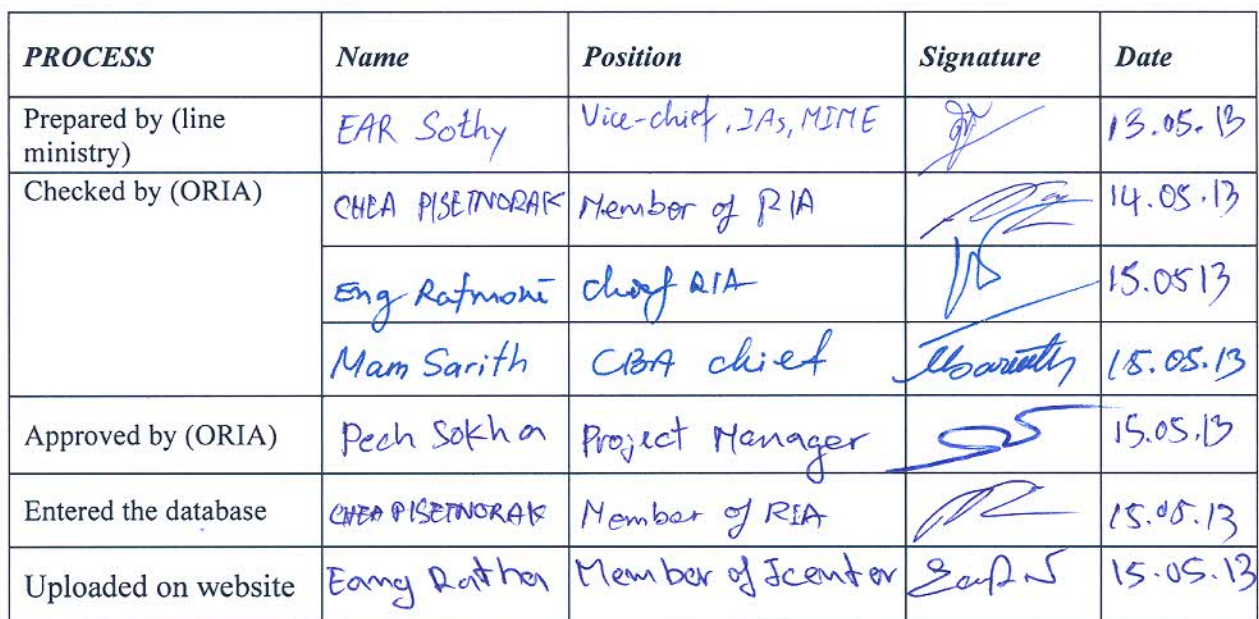 PROCESS Name Position Signature Date
Prepared by (line ministry) EAR Sothy Vice-chief, IAs, MIME 13.05.13
Checked by (ORIA) CHEA PISETNORAK Member of RIA 14.05.13
Eng Ratmoni chief RIA 15.0513
Mam Sarith CBA chief 15.05.13
Approved by (ORIA) Pech Sokha Project Manager 15.05.13
Entered the database CHEA PISETNORAK Member of RIA 15.05.13
Uploaded on website Eang Ratha Member of Icenter 15.05.13